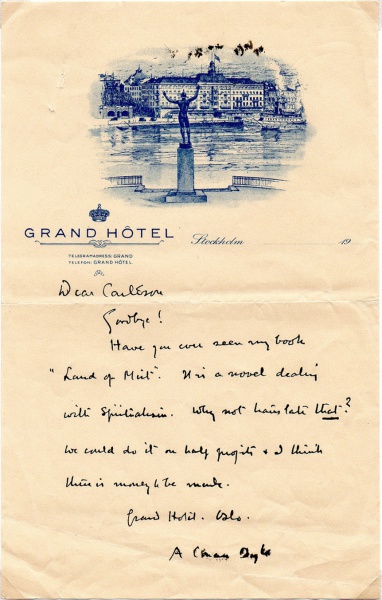 GRAND HÔTEL
Stockholm 19
TELEGRAMADRESS: GRAND
TELEFON: GRAND HÔTEL
Dear Carleson
Goodbye!
Have you ever seen my book
"Land of Mist". It is a novel dealing
with Spiritualism. Why not translate that?
We could do it on half profits & I think
there is money to be made.
Grand Hotel. Oslo.
A Conan Doyle